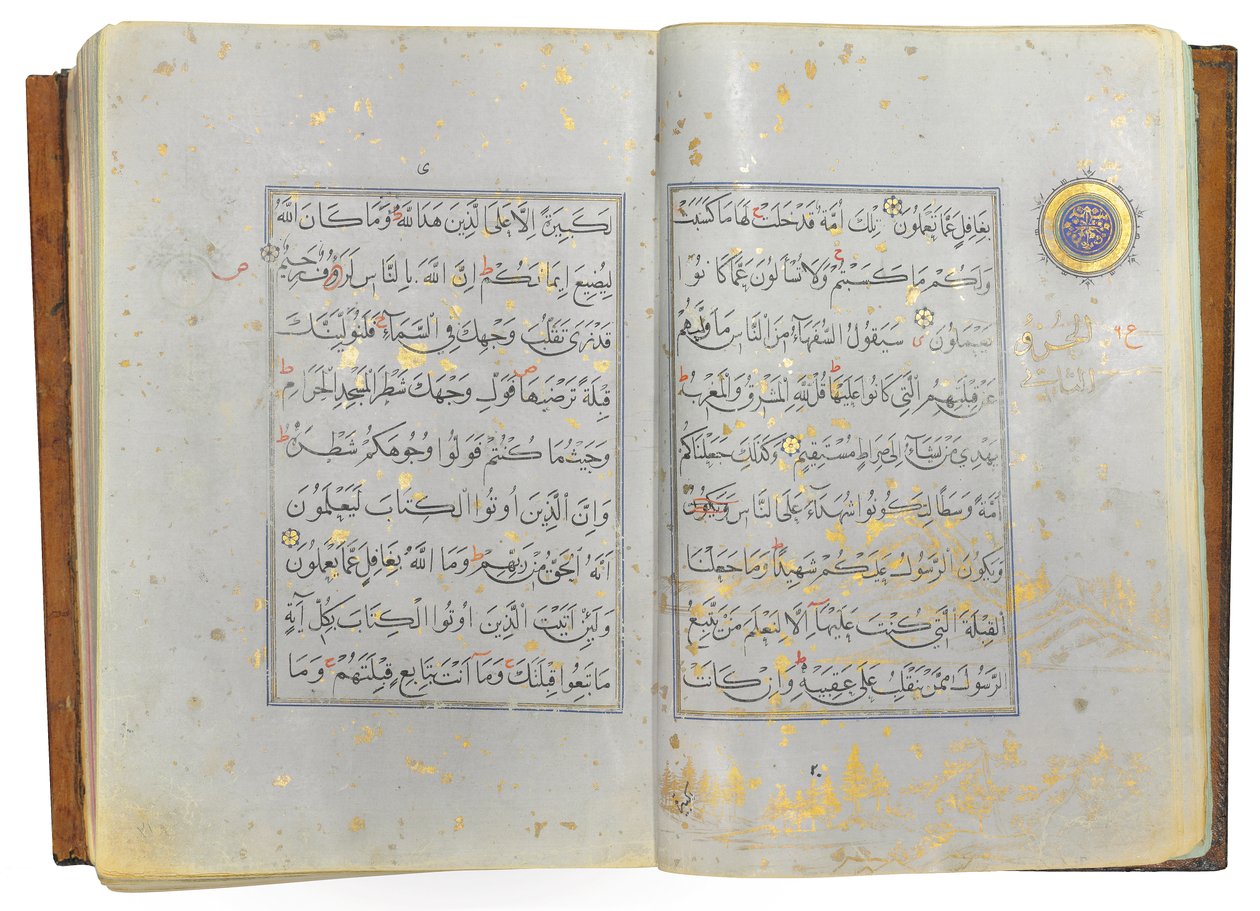 بِغَافِلٍ عَمَّا تَعْمَلُونَ تِلْكَ أُمَّةٌ قَدْ خَلَتْ لَهَا مَا كَسَبَتْ
وَلَكُمْ مَا كَسَبْتُمْ وَلَا تُسْأَلُونَ عَمَّا كَانُوا
يَعْمَلُونَ سَيَقُولُ السُّفَهَآءُ مِنَ النَّاسِ مَا وَلّٰيهُمْ
عَنْ قِبْلَتِهِمُ الَّتِي كَانُوا عَلَيْهَا قُلْ لِلّٰهِ الْمَشْرِقُ وَالْمَغْرِبُ
يَهْدِي مَنْ يَشَآءُ إِلَى صِرَاطٍ مُسْتَقِيمٍ وَكَذَلِكَ جَعَلْنَاكُمْ
أُمَّةً وَسَطًا لِتَكُونُوا شُهَدَآءَ عَلَى النَّاسِ وَيَكُونَ
وَيَكُونَ الرَّسُولُ عَلَيْكُمْ شَهِيدًا وَمَا جَعَلْنَا
الْقِبْلَةَ الَّتِي كُنْتَ عَلَيْهَا إِلَّا لِنَعْلَمَ مَنْ يَتَّبِعُ
الرَّسُولَ مِمَّنْ يَنْقَلِبُ عَلَى عَقِبَيْهِ وَإِنْ كَانَتْ
الجزؤ
الثاني
٢٠
لَكَبِيرَةً إِلَّا عَلَى الَّذِينَ هَدَا اللّٰهُ وَمَا كَانَ اللّٰهُ
لِيُضِيعَ إِيمَانَكُمْ إِنَّ اللّٰهَ بِالنَّاسِ لَرَؤُفٌ رَحِيمٌ
قَدْ نَرَى تَقَلُّبَ وَجْهِكَ فِي السَّمَآءِ فَلَنُوَلِّيَنَّكَ
قِبْلَةً تَرْضَيهَا فَوَلِّ وَجْهَكَ شَطْرَ الْمَسْجِدِ الْحَرَامِ
وَحَيْثُ مَا كُنْتُمْ فَوَلُّوا وُجُوهَكُمْ شَطْرَهُ
وَإِنَّ الَّذِينَ أُوتُوا الْكِتَابَ لَيَعْلَمُونَ
أَنَّهُ الْحَقُّ مِنْ رَبِّهِمْ وَمَا اللّٰهُ بِغَافِلٍ عَمَّا يَعْمَلُونَ
وَلَئِنْ أَتَيْتَ الَّذِينَ أُوتُوا الْكِتَابَ بِكُلِّ آيَةٍ
مَا تَبِعُوا قِبْلَتَكَ وَمَآ أَنْتَ بِتَابِعٍ قِبْلَتَهُمْ وَمَا